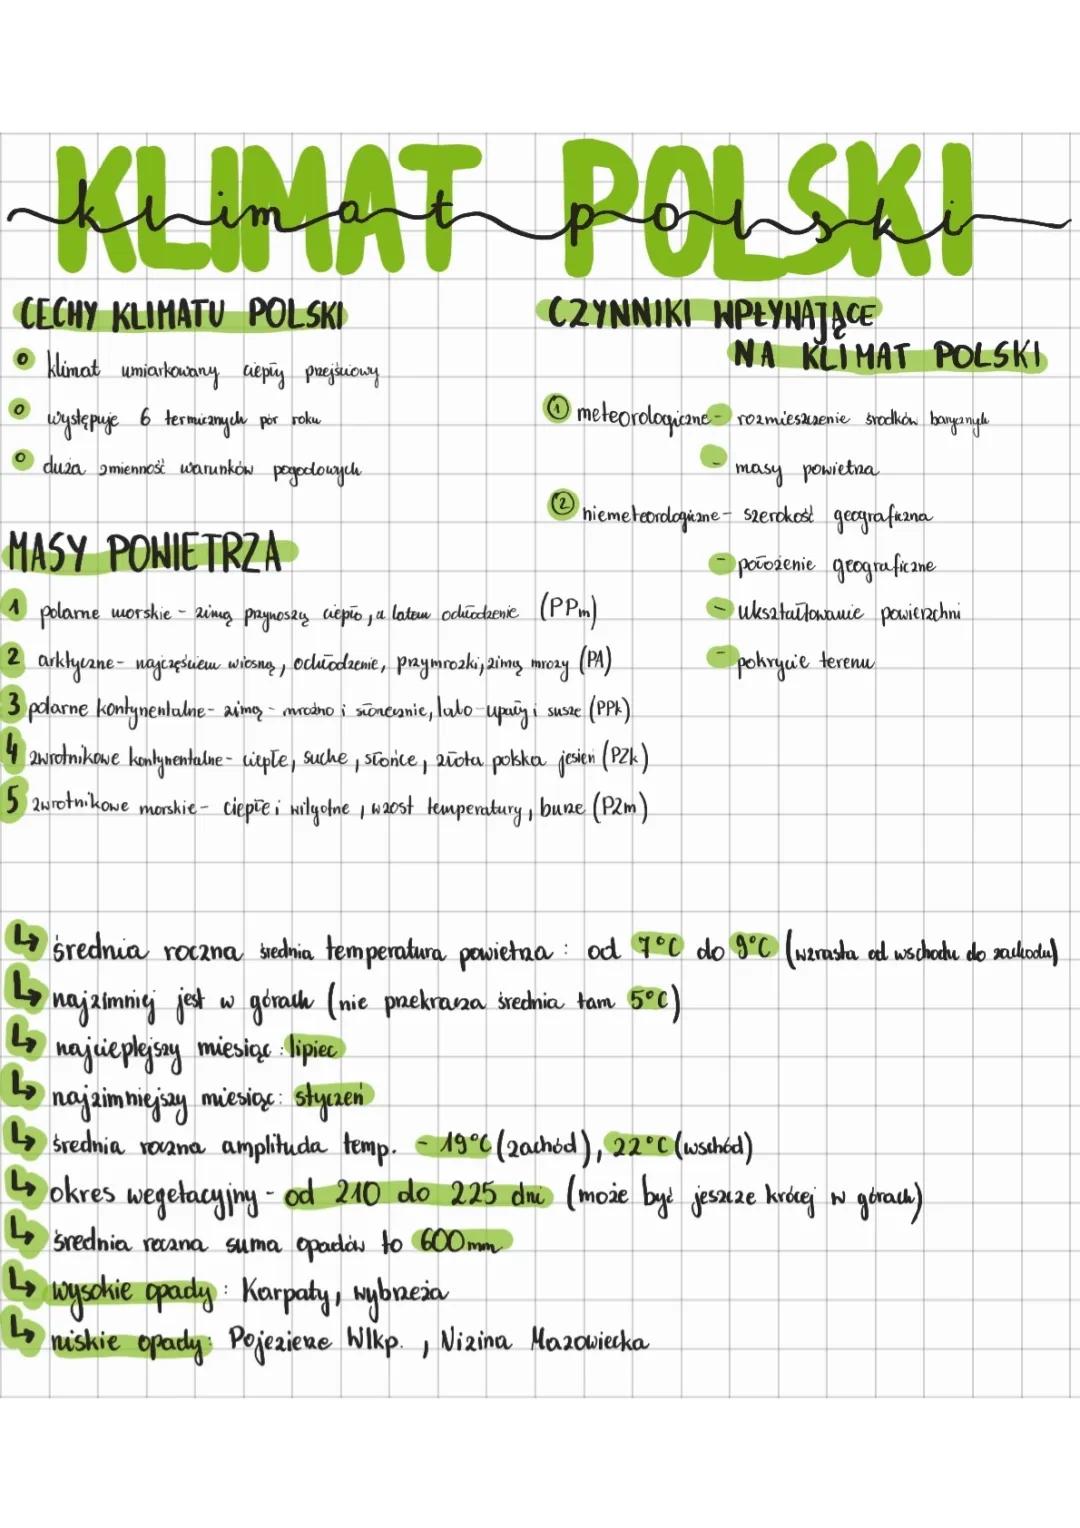 KLIMAT POLSKI
klimat polski
CECHY KLIMATU POLSKI
klimat umiarkowany ciepły przejściowy
występuje 6 termicznych pór roku
duża zmienność warunków pogodowych
CZYNNIKI WPŁYWAJĄCE
NA KLIMAT POLSKI
1 meteorologiczne - rozmieszczenie środków barycznych
- masy powietrza
2 niemeteorologiczne - szerokość geograficzna
- położenie geograficzne
- ukształtowanie powierzchni
- pokrycie terenu
MASY POWIETRZA
1 polarne morskie - zimą przynoszą ciepło, a latem ochłodzenie (PPm)
2 arktyczne - najczęściem wiosną, ochłodzenie, przymrozki, zimą mrozy (PA)
3 polarne kontynentalne - zimą - mroźno i słonecznie, lato - upały i susze (PPk)
4 zwrotnikowe kontynentalne - ciepłe, suche, słońce, złota polska jesień (PZk)
5 zwrotnikowe morskie - ciepłe i wilgotne, wzost temperatury, burze (PZm)
↳ średnia roczna średnia temperatura powietrza : od 7°C do 9°C (wzrasta od wschodu do zachodu)
↳ najzimniej jest w górach (nie przekracza średnia tam 5°C)
↳ najcieplejszy miesiąc : lipiec
↳ najzimniejszy miesiąc : styczeń
↳ średnia roczna amplituda temp. - 19°C (zachód), 22°C (wschód)
↳ okres wegetacyjny - od 210 do 225 dni (może być jeszcze krócej w górach)
↳ średnia roczna suma opadów to 600mm
↳ wysokie opady : Karpaty, wybrzeża
↳ niskie opady : Pojezierze Wlkp. , Nizina Mazowiecka